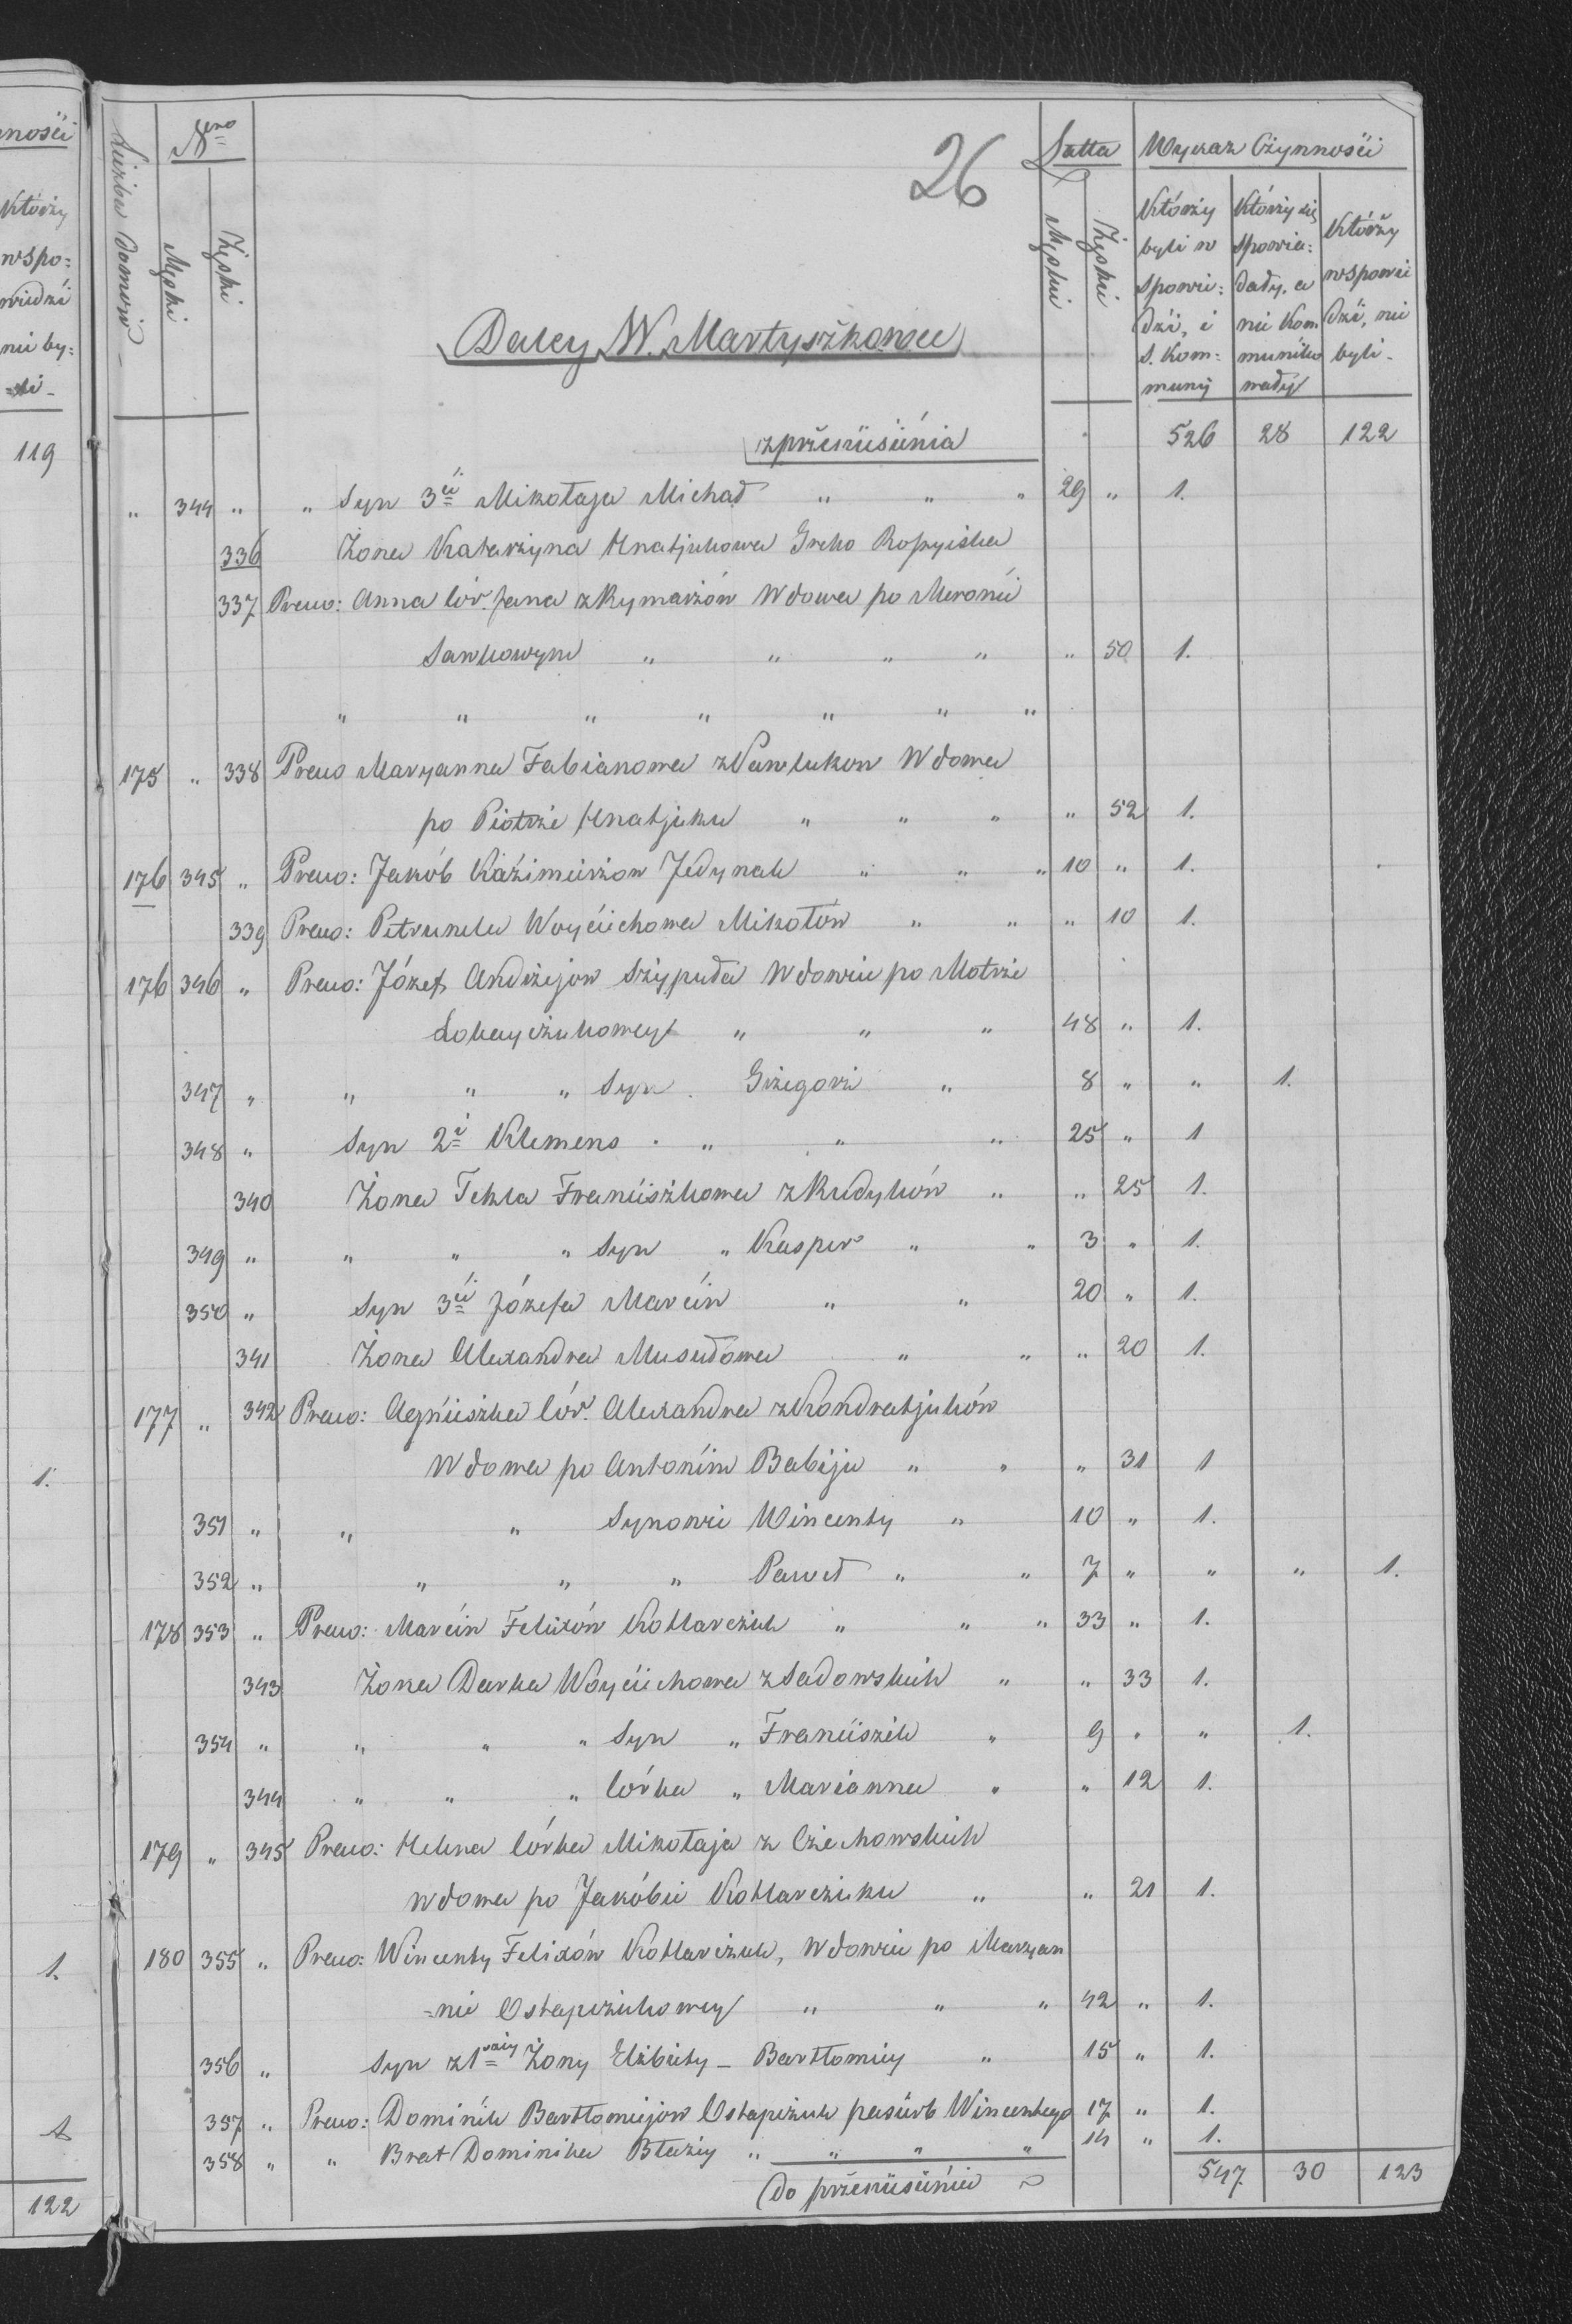 nośći
Którzy
w spo:
wiedzi
nie by:
-li-
119
1.
1.
1
122
26
Liczba Domów
Nero
Męski
Żeński
Latta
Męskie
Żeńskie
Wykaz Czynnośći
Którzy byli w spowie: dźi, i S. Kom: munij
Którzy się spowia: dały, a nie Kom muniko wały
Którzy w spowie dźi, nie byli-
Daley W. Martyszkowce
z przeniesienia 526 28 122
" 344 " " Syn 3ci Mikołaja Michał " " " 29 " 1.
336 Żona Katarzyna Hnatjukowa Greko Rossyiska
337 Praco: Anna Cór. Jana z Rymarzów Wdowa po Meronie
Sawkowym " " " " " 50 1.
" " " " " " "
175 " 338 Praco Maryanna Fabianowa z Pawlukow Wdowa
po Piotrze Hnatjuku " " " " 52 1.
176 345 " Praco: Jakób Kaźimierzow Jedynak " " " 10 " 1.
339 Praco: Petrunela Woyćiechowa Mikołów " " " 10 1.
176 346 " Praco: Józef Andrzejow Szypuła Wdowiec po Motrze
Lokayczukowey " " " 48 " 1.
347 " " " " Syn Grzegorz " 8 " " 1.
348 " Syn 2i Klemens " " " 25 " 1
340 Żona Tekla Franciszkowa z Rudyków " " 25 1.
349 " " " " Syn " Kasper " " 3 " 1.
350 " Syn 3ci Józefa Marcin " " 20 " 1.
341 Żona Alexandra Musułowa " " " 20 1.
177 " 342 Praco: Agnieszka Cór. Alexandra z Kondratjuków
Wdowa po Antonim Babiju " " " 31 1
351 " " " Synowie Wincenty " 10 " 1.
352 " " " " Paweł " " 7 " " " 1.
178 353 " Praco: Marcin Felixów Kotlarczuk " " " 33 " 1.
343 Żona Darka Woyćiechowa z Sadowskich " " 33 1.
354 " " " " Syn " Franciszek " 9 " " 1.
344 " " " Córka " Marianna " " 12 1.
179 " 345 Praco: Helena Córka Mikołaja z Czechowskich
wdowa po Jakóbie Kotlarczuku " " 21 1.
180 355 " Praco: Wincenty Felixów Kotlarczuk, Wdowiec po Maryan
=nie Ostapczukowey " " " 42 " 1.
356 " Syn z 1szey Żony Elżbiety - Bartłomiey " 15 " 1.
357 " Praco: Dominik Bartłomiejow Ostapczuk pasierb Wincentego 17 " 1.
358 " " Brat Dominika Błażey " " " " 14 " 1.
Do przeniesienia 547 30 123